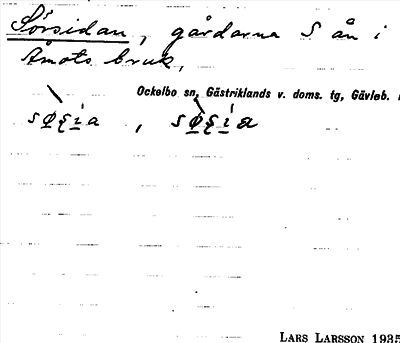 Sörsidan, gårdarna S ån i
Åmots bruk,
Ockelbo sn, Gästriklands v. doms. tg, Gävleb.
LARS LARSSON 1935